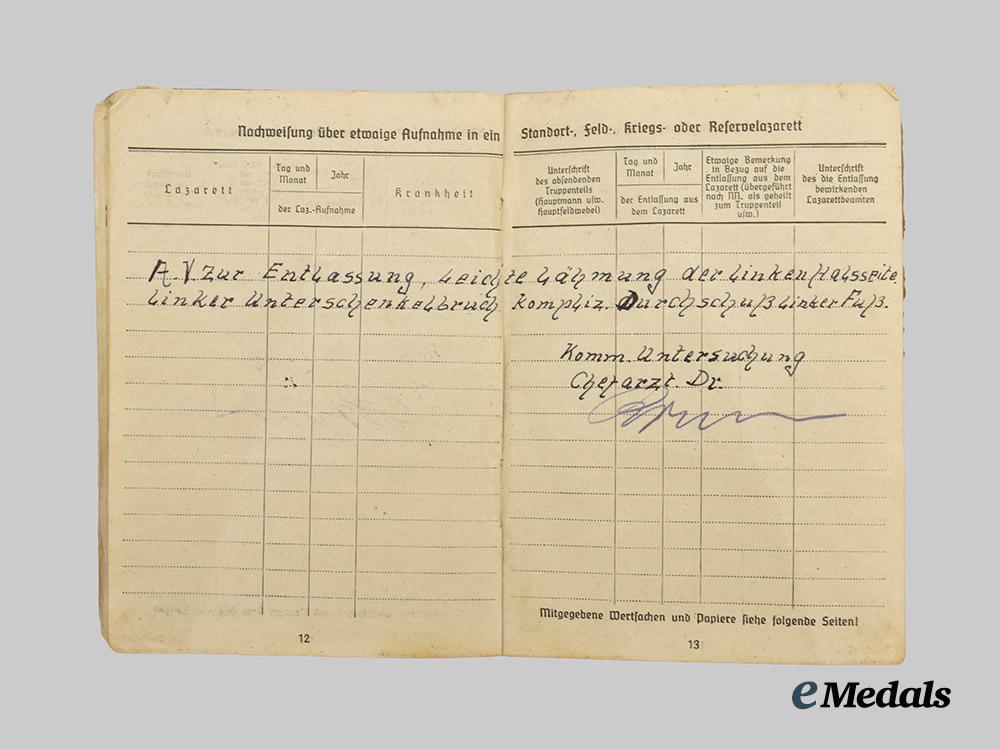 Nachweisung über etwaige Aufnahme in ein Standort-, Feld-, Kriegs- oder Reservelazarett
Lazarett
Tag und Monat
Jahr
der Laz.-Aufnahme
Krankheit
Unterschrift
des absendenden
Truppenteils
(Hauptmann usw.
Hauptfeldwebel)
Tag und Monat
Jahr
der Entlassung aus
dem Lazarett
Etwaige Bemerkung
in Bezug auf die
Entlassung aus dem
Lazarett (übergeführt
nach NN. als geheilt
zum Truppenteil
usw.)
Unterschrift
des die Entlassung
bewirkenden
Lazarettbeamten
A.V zur Entlassung, Leichte Lähmung der linken Halsseite
Linker Unterschenkelbruch Kompliz. Durchschuß Linker Fuß.
Komm. Untersuchung
Chefarzt Dr.
Mitgegebene Wertsachen und Papiere siehe folgende Seiten!
12
13
eMedals